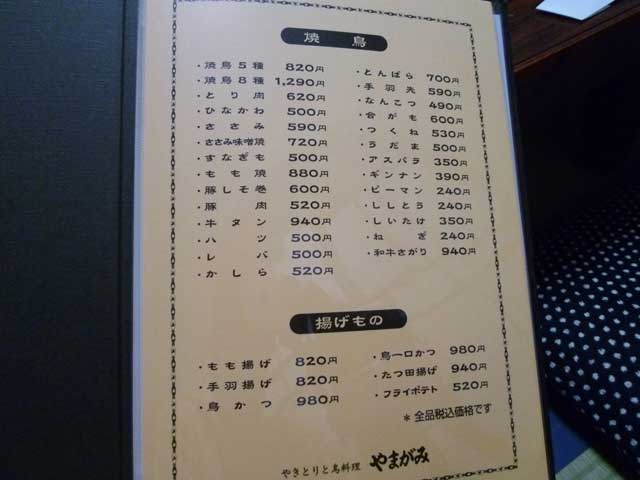 焼鳥
・焼鳥5種 820円
・焼鳥8種 1,290円
・とり肉 620円
・ひなかわ 500円
・ささみ 590円
・ささみ味噌焼 720円
・すなぎも 500円
・もも焼 880円
・豚しそ巻 600円
・豚肉 520円
・牛タン 940円
・ハツ 500円
・レバ 500円
・かしら 520円
・とんばら 700円
・手羽先 590円
・なんこつ 490円
・合がも 600円
・つくね 530円
・うだま 500円
・アスパラ 350円
・ギンナン 390円
・ピーマン 240円
・ししとう 240円
・しいたけ 350円
・ねぎ 240円
・和牛さがり 940円
揚げもの
・もも揚げ 820円
・手羽揚げ 820円
・鳥かつ 980円
・鳥一口かつ 980円
・たつ田揚げ 940円
・フライポテト 520円
＊全品税込価格です
やきとりと鳥料理 やまがみ